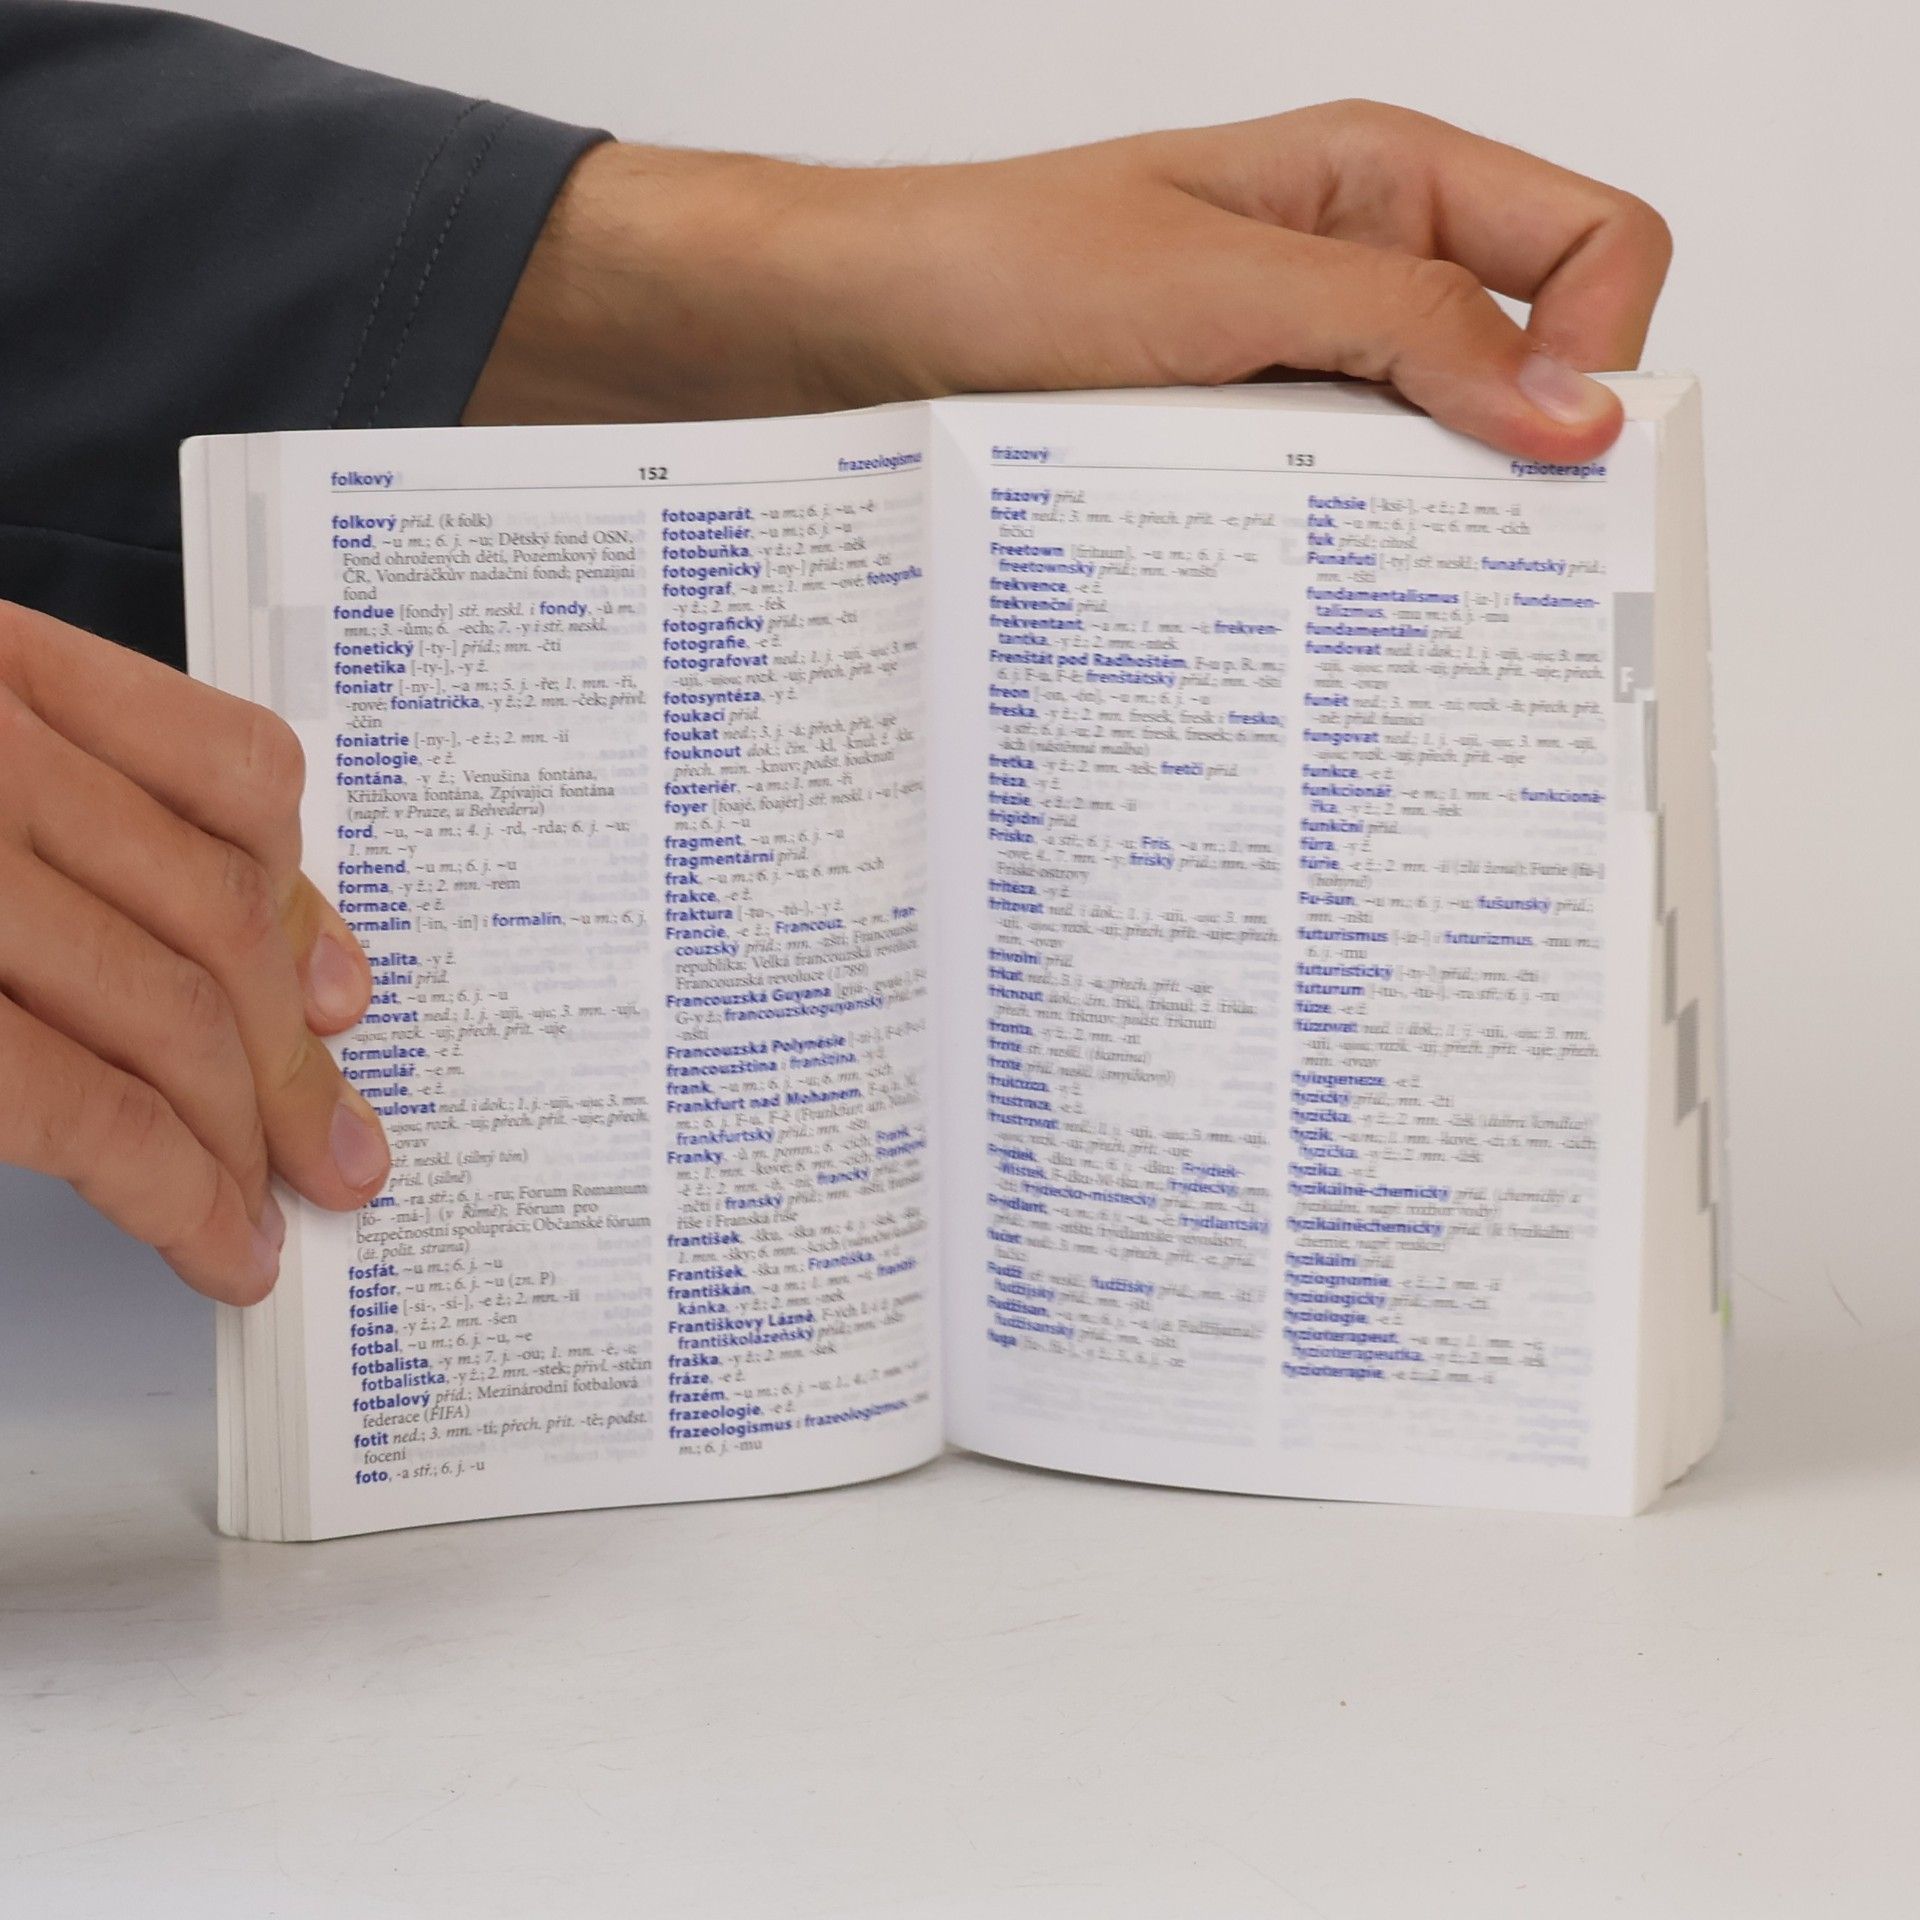 folkový
152
frazeologismus
folkový příd. (k folk)
fond, ~u m.; 6. j. ~u; Dětský fond OSN,
Fond ohrožených dětí, Pozemkový fond
ČR, Vondráčkův nadační fond; penzijní
fond
fondue [fondy] stř. neskl. i fondy, -ů m.
mn.; 3. -ům; 6. -ech; 7. -y i stř. neskl.
fonetický [-ty-] příd.; mn. -čtí
fonetika [-ty-], -y ž.
foniatr [-ny-], ~a m.; 5. j. -ře; 1. mn. -ři,
-rové; foniatrička, -y ž.; 2. mn. -ček; přivl.
-ččin
foniatrie [-ny-], -e ž.; 2. mn. -ií
fonologie, -e ž.
fontána, -y ž.; Venušina fontána,
Křižíkova fontána, Zpívající fontána
(např. v Praze, u Belvederu)
ford, ~u, ~a m.; 4. j. -rd, -rda; 6. j. ~u;
1. mn. ~y
forhend, ~u m.; 6. j. ~u
forma, -y ž.; 2. mn. -rem
formace, -e ž.
ormalin [-in, -ín] i formalín, ~u m.; 6. j.
malita, -y ž.
nální příd.
nát, ~u m.; 6. j. ~u
rmovat ned.; 1. j. -uji, -uju; 3. mn. -ují,
-ujou; rozk. -uj; přech. přít. -uje
formulace, -e ž.
formulář, ~e m.
rmule, -e ž.
nulovat ned. i dok.; 1. j. -uji, -uju; 3. mn.
-ujou; rozk. -uj; přech. přít. -uje; přech.
-ovav
stř. neskl. (silný tón)
přísl. (silně)
um, -ra stř.; 6. j. -ru; Forum Romanum
[fó- -má-] (v Římě); Fórum pro
bezpečnostní spolupráci; Občanské fórum
(dř. polit. strana)
fosfát, ~u m.; 6. j. ~u
fosfor, ~u m.; 6. j. ~u (zn. P)
fosilie [-si-, -sí-], -e ž.; 2. mn. -ií
fošna, -y ž.; 2. mn. -šen
fotbal, ~u m.; 6. j. ~u, ~e
fotbalista, -y m.; 7. j. -ou; 1. mn. -é, -i;
fotbalistka, -y ž.; 2. mn. -stek; přivl. -stčin
fotbalový příd.; Mezinárodní fotbalová
federace (FIFA)
fotit ned.; 3. mn. -tí; přech. přít. -tě; podst.
focení
foto, -a stř.; 6. j. -u
fotoaparát, ~u m.; 6. j. ~u, ~ě
fotoateliér, ~u m.; 6. j. ~u
fotobuňka, -y ž.; 2. mn. -něk
fotogenický [-ny-] příd.; mn. -čtí
fotograf, ~a m.; 1. mn. ~ové; fotografka
-y ž.; 2. mn. -fek
fotografický příd.; mn. -čtí
fotografie, -e ž.
fotografovat ned.; 1. j. -uji, -uju; 3. mn.
-ují, -ujou; rozk. -uj; přech. přít. -uje
fotosyntéza, -y ž.
foukací příd.
foukat ned.; 3. j. -á; přech. přít. -aje
fouknout dok.; čin. -kl, -knul; ž. -kla;
přech. min. -knuv; podst. fouknutí
foxteriér, ~a m.; 1. mn. -ři
foyer [foajé, foajér] stř. neskl. i ~u
m.; 6. j. ~u
fragment, ~u m.; 6. j. ~u
fragmentární příd.
frak, ~u m.; 6. j. ~u; 6. mn. -cích
frakce, -e ž.
fraktura [-tu-, -tú-], -y ž.
Francie, -e ž.; Francouz, ~e m.; fran-
couzský příd.; mn. -zští; Francouzská
republika; Velká francouzská revoluce,
Francouzská revoluce (1789)
Francouzská Guyana
G-y ž.; francouzskoguyanský příd.; mn.
-nští
Francouzská Polynésie
francouzština i franština, -y ž.
frank, ~u m.; 6. j. ~u; 6. mn. -cích
Frankfurt nad Mohanem,
m.; 6. j. F-u, F-ě (Frankfurt am Main);
frankfurtský příd.; mn. -tští
Franky, -ů m. pomn.; 6. -cích; Frank, ~a
m.; 1. mn. -kové; 6. mn. -cích;
francký příd.; mn.
-nčtí i franský příd.; mn. -nští;
říše i Franská říše
františek, -šku, -ška m.;
1. mn. -šky; 6. mn. -šcích
František, -ška m.; Františka, -y ž.
františkán, ~a m.; 1. mn. -i; františ-
kánka, -y ž.; 2. mn. -nek
Františkovy Lázně,
františkolázeňský příd.; mn.
fraška, -y ž.; 2. mn. -šek
fráze, -e ž.
frazém, ~u m.; 6. j. ~u;
frazeologie, -e ž.
frazeologismus i frazeologizmus,
m.; 6. j. -mu
frázový
153
fyzioterapie
frázový příd.
frčet ned.; 3. mn. -í; přech. přít. -e; příd.
frčící
Freetown [frítaun], ~u m.; 6. j. ~u;
freetownský příd.; mn. -wnští
frekvence, -e ž.
frekvenční příd.
frekventant, ~a m.; 1. mn. -i; frekven-
tantka, -y ž.; 2. mn. -ntek
Frenštát pod Radhoštěm, F-u p. R. m.;
6. j. F-u, F-ě; frenštátský příd.; mn. -tští
freon [-on, -ón], ~u m.; 6. j. ~u
freska, -y ž.; 2. mn. fresek, fresk i fresko,
-a stř.; 6. j. -u; 2. mn. fresk, fresek; 6. mn.
-ách (nástěnná malba)
fretka, -y ž.; 2. mn. -tek; fretčí příd.
fréza, -y ž.
frézie, -e ž.; 2. mn. -ií
frigidní příd.
Frísko, -a stř.; 6. j. -u; Frís, ~a m.; 1. mn.
-ové, 4., 7. mn. ~y; fríský příd.; mn. -ští;
Fríské ostrovy
fritéza, -y ž.
fritovat ned. i dok.; 1. j. -uji, -uju; 3. mn.
-ují, -ujou; rozk. -uj; přech. přít. -uje; přech.
min. -ovav
frivolní příd.
frkat ned.; 3. j. -á; přech. přít. -aje
frknout dok.; čin. frkl, frknul; ž. frkla;
přech. min. frknuv; podst. frknutí
fronta, -y ž.; 2. mn. -nt
froté stř. neskl. (tkanina)
froté příd. neskl. (smyčkový)
fruktóza, -y ž.
frustrace, -e ž.
frustrovat ned.; 1. j. -uji, -uju; 3. mn. -ují,
-ujou; rozk. -uj; přech. přít. -uje
Frýdek, -dku m.; 6. j. -dku; Frýdek-
-Místek,
Frýdlant, ~u m.; 6. j. ~u, ~ě; frýdlantský
fučet ned.; 3. mn. -í; přech. přít. -e; příd.
fučící
Fudži stř. neskl.; fudžijský příd.; mn. -jští i
fudžijský příd.; mn. -jští
fudžisanský příd.; mn. -nští
fuga
fuchsie [-ksi-], -e ž.; 2. mn. -ií
fuk, ~u m.; 6. j. ~u; 6. mn. -cích
fuk přísl.; citosl.
Funafuti [-ty] stř. neskl.; funafutský příd.;
mn. -tští
fundamentalismus [-iz-] i fundamen-
talizmus, -mu m.; 6. j. -mu
fundamentální příd.
fundovat ned. i dok.; 1. j. -uji, -uju; 3. mn.
-ují, -ujou; rozk. -uj; přech. přít. -uje; přech.
min. -ovav
funět ned.; 3. mn. -ní; rozk. -ň; přech. přít.
-ně; příd. funící
fungovat ned.; 1. j. -uji, -uju; 3. mn. -ují,
-ujou; rozk. -uj; přech. přít. -uje
funkce, -e ž.
funkcionář, ~e m.; 1. mn. -i; funkcioná-
řka, -y ž.; 2. mn. -řek
funkční příd.
fúra, -y ž.
fúrie, -e ž.; 2. mn. -ií (zlá žena); Furie
(bohyně)
Fu-šun, ~u m.; 6. j. ~u; fušunský příd.;
mn. -nští
futurismus [-iz-] i futurizmus, -mu m.;
6. j. -mu
futuristický [-ty-] příd.; mn. -čtí
futurum [-tu-, -tú-], -ra stř.; 6. j. -ru
fúze, -e ž.
fúzovat ned. i dok.; 1. j. -uji, -uju; 3. mn.
-ují, -ujou; rozk. -uj; přech. přít. -uje; přech.
min. -ovav
fylogeneze, -e ž.
fyzický příd.; mn. -čtí
fyzička, -y ž.; 2. mn. -ček (dobrá kondice)
fyzik, ~a m.; 1. mn. -kové, -ci; 6. mn. -cích;
fyzička, -y ž.; 2. mn. -ček
fyzika, -y ž.
fyzikálně-chemický příd. (chemický a
fyzikální, např. rozbor vody)
fyzikálněchemický příd. (k fyzikální
chemie, např. reakce)
fyzikální příd.
fyziognomie, -e ž.; 2. mn. -ií
fyziologický příd.; mn. -čtí
fyziologie, -e ž.
fyzioterapeut, ~a m.; 1. mn. -i;
fyzioterapeutka, -y ž.; 2. mn. -tek
fyzioterapie, -e ž.; 2. mn. -ií
F